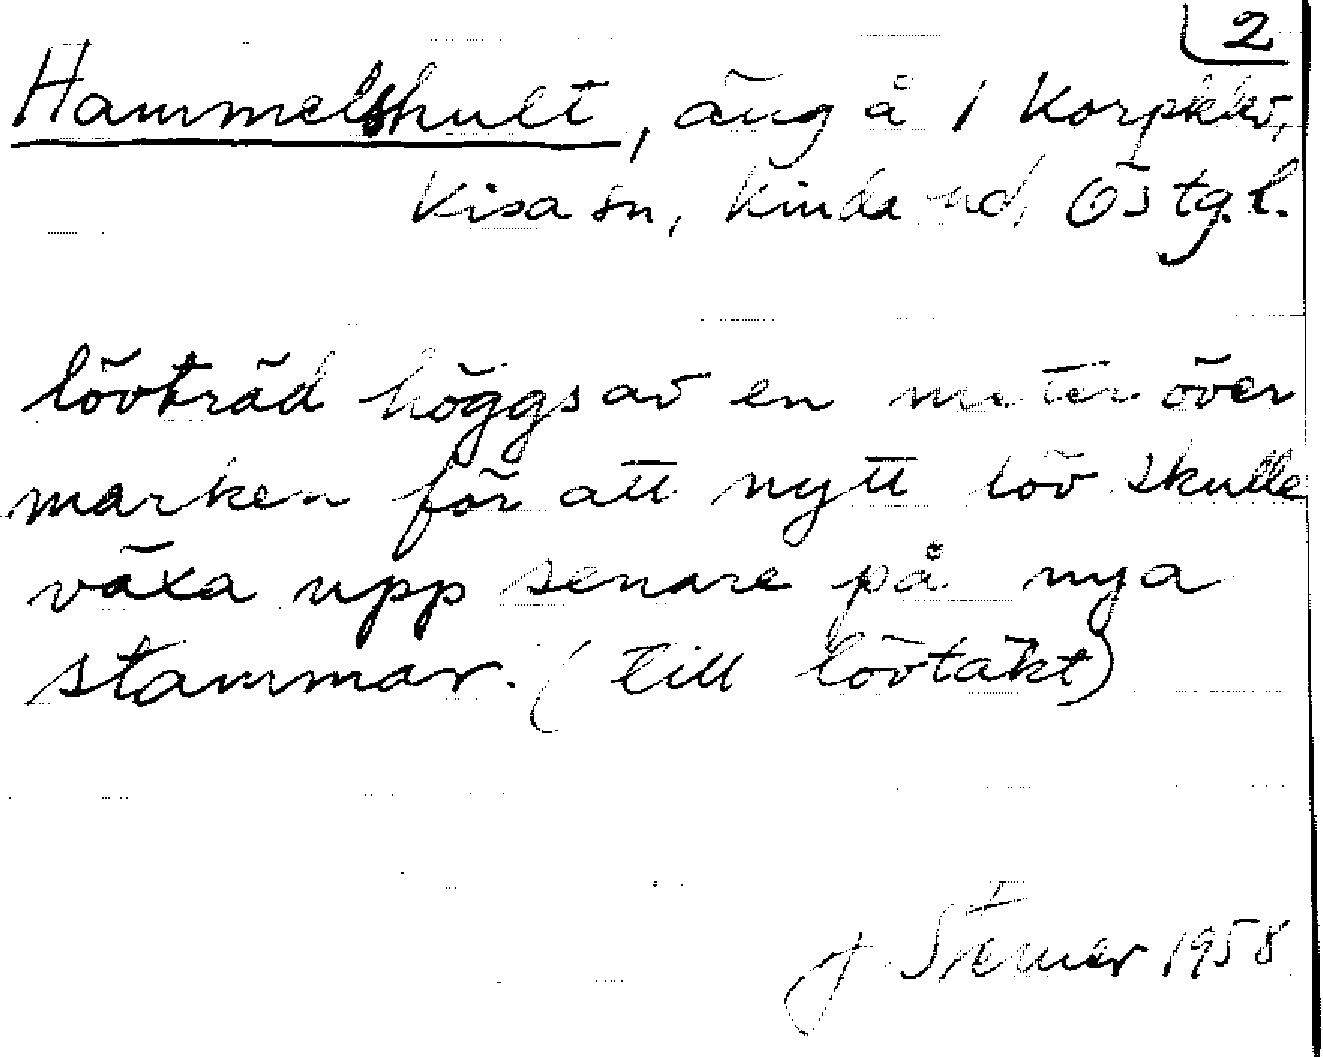 2
Hammelshult, äng å 1 Korpklev,
Kisa sn, Kinda hd, Östg. l.
lövträd höggs av en meter över
marken för att nytt löv skulle
växa upp senare på nya
stammar. (till lövtäkt)
J. 1958